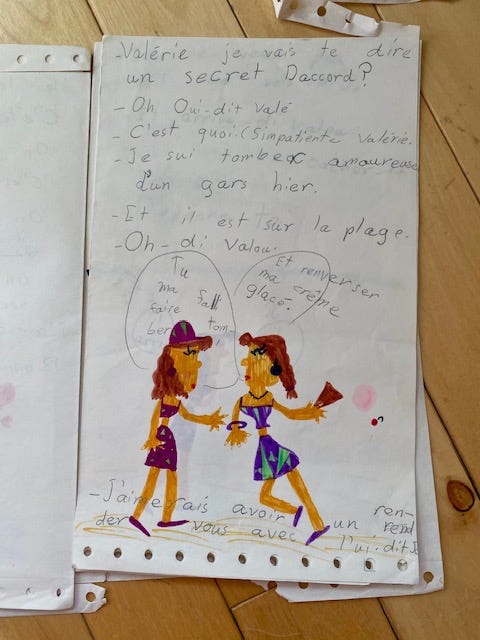 -Valérie je vais te dire
un secret Daccord?
-Oh Oui-dit Valé
-C'est quoi.(Simpatiente Valérie.
-Je sui tomber amoureuse
d'un gars hier.
-Et il est sur la plage.
-Oh-di Valou.
Tu
ma
faire
ber tom
Et renverser
ma crème
glacé.
-J'aimerais avoir un ren-
der vous avec
l'ui.dit